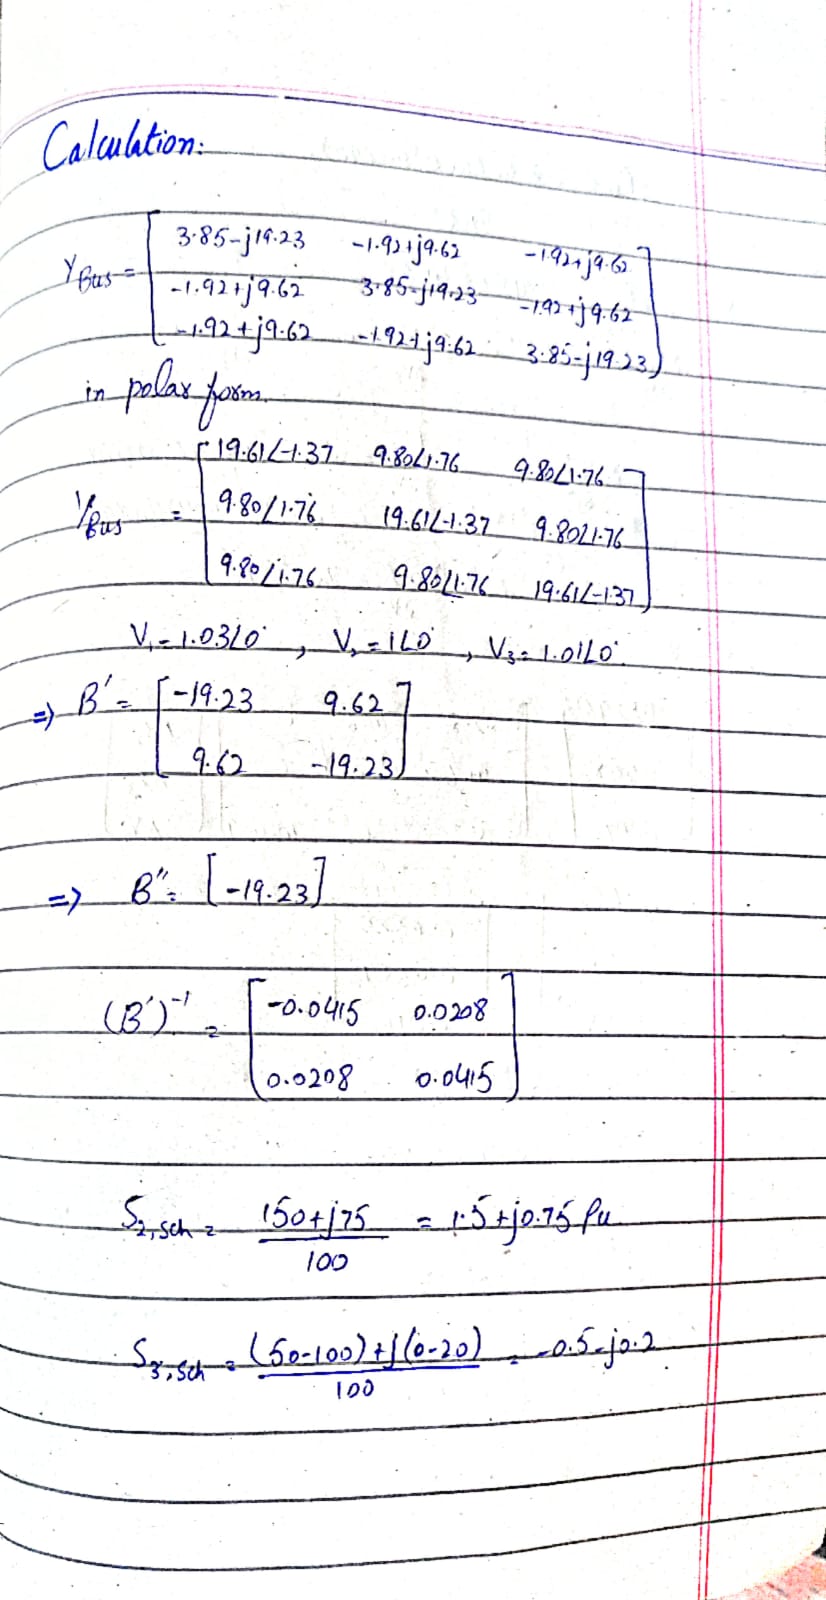 Calculation:
Y Bus = [ 3.85-j19.23 -1.92+j9.62 -1.92+j9.62
-1.92+j9.62 3.85-j19.23 -1.92+j9.62
-1.92+j9.62 -1.92+j9.62 3.85-j19.23 ]
in polar form.
YBus = [ 19.61∠-1.37 9.80∠1.76 9.80∠1.76
9.80∠1.76 19.61∠-1.37 9.80∠1.76
9.80∠1.76 9.80∠1.76 19.61∠-1.37 ]
V₁ = 1.03∠0°, V₂ = 1∠0°, V₃ = 1.01∠0°.
=> B' = [ -19.23 9.62
9.62 -19.23 ]
=> B'' = [-19.23]
(B')⁻¹ = [ -0.0415 0.0208
0.0208 0.0415 ]
S₂,sch = 150+j75 = 1.5+j0.75 Pu
100
S₃,sch = (50-100)+j(0-20) = -0.5-j0.2
100